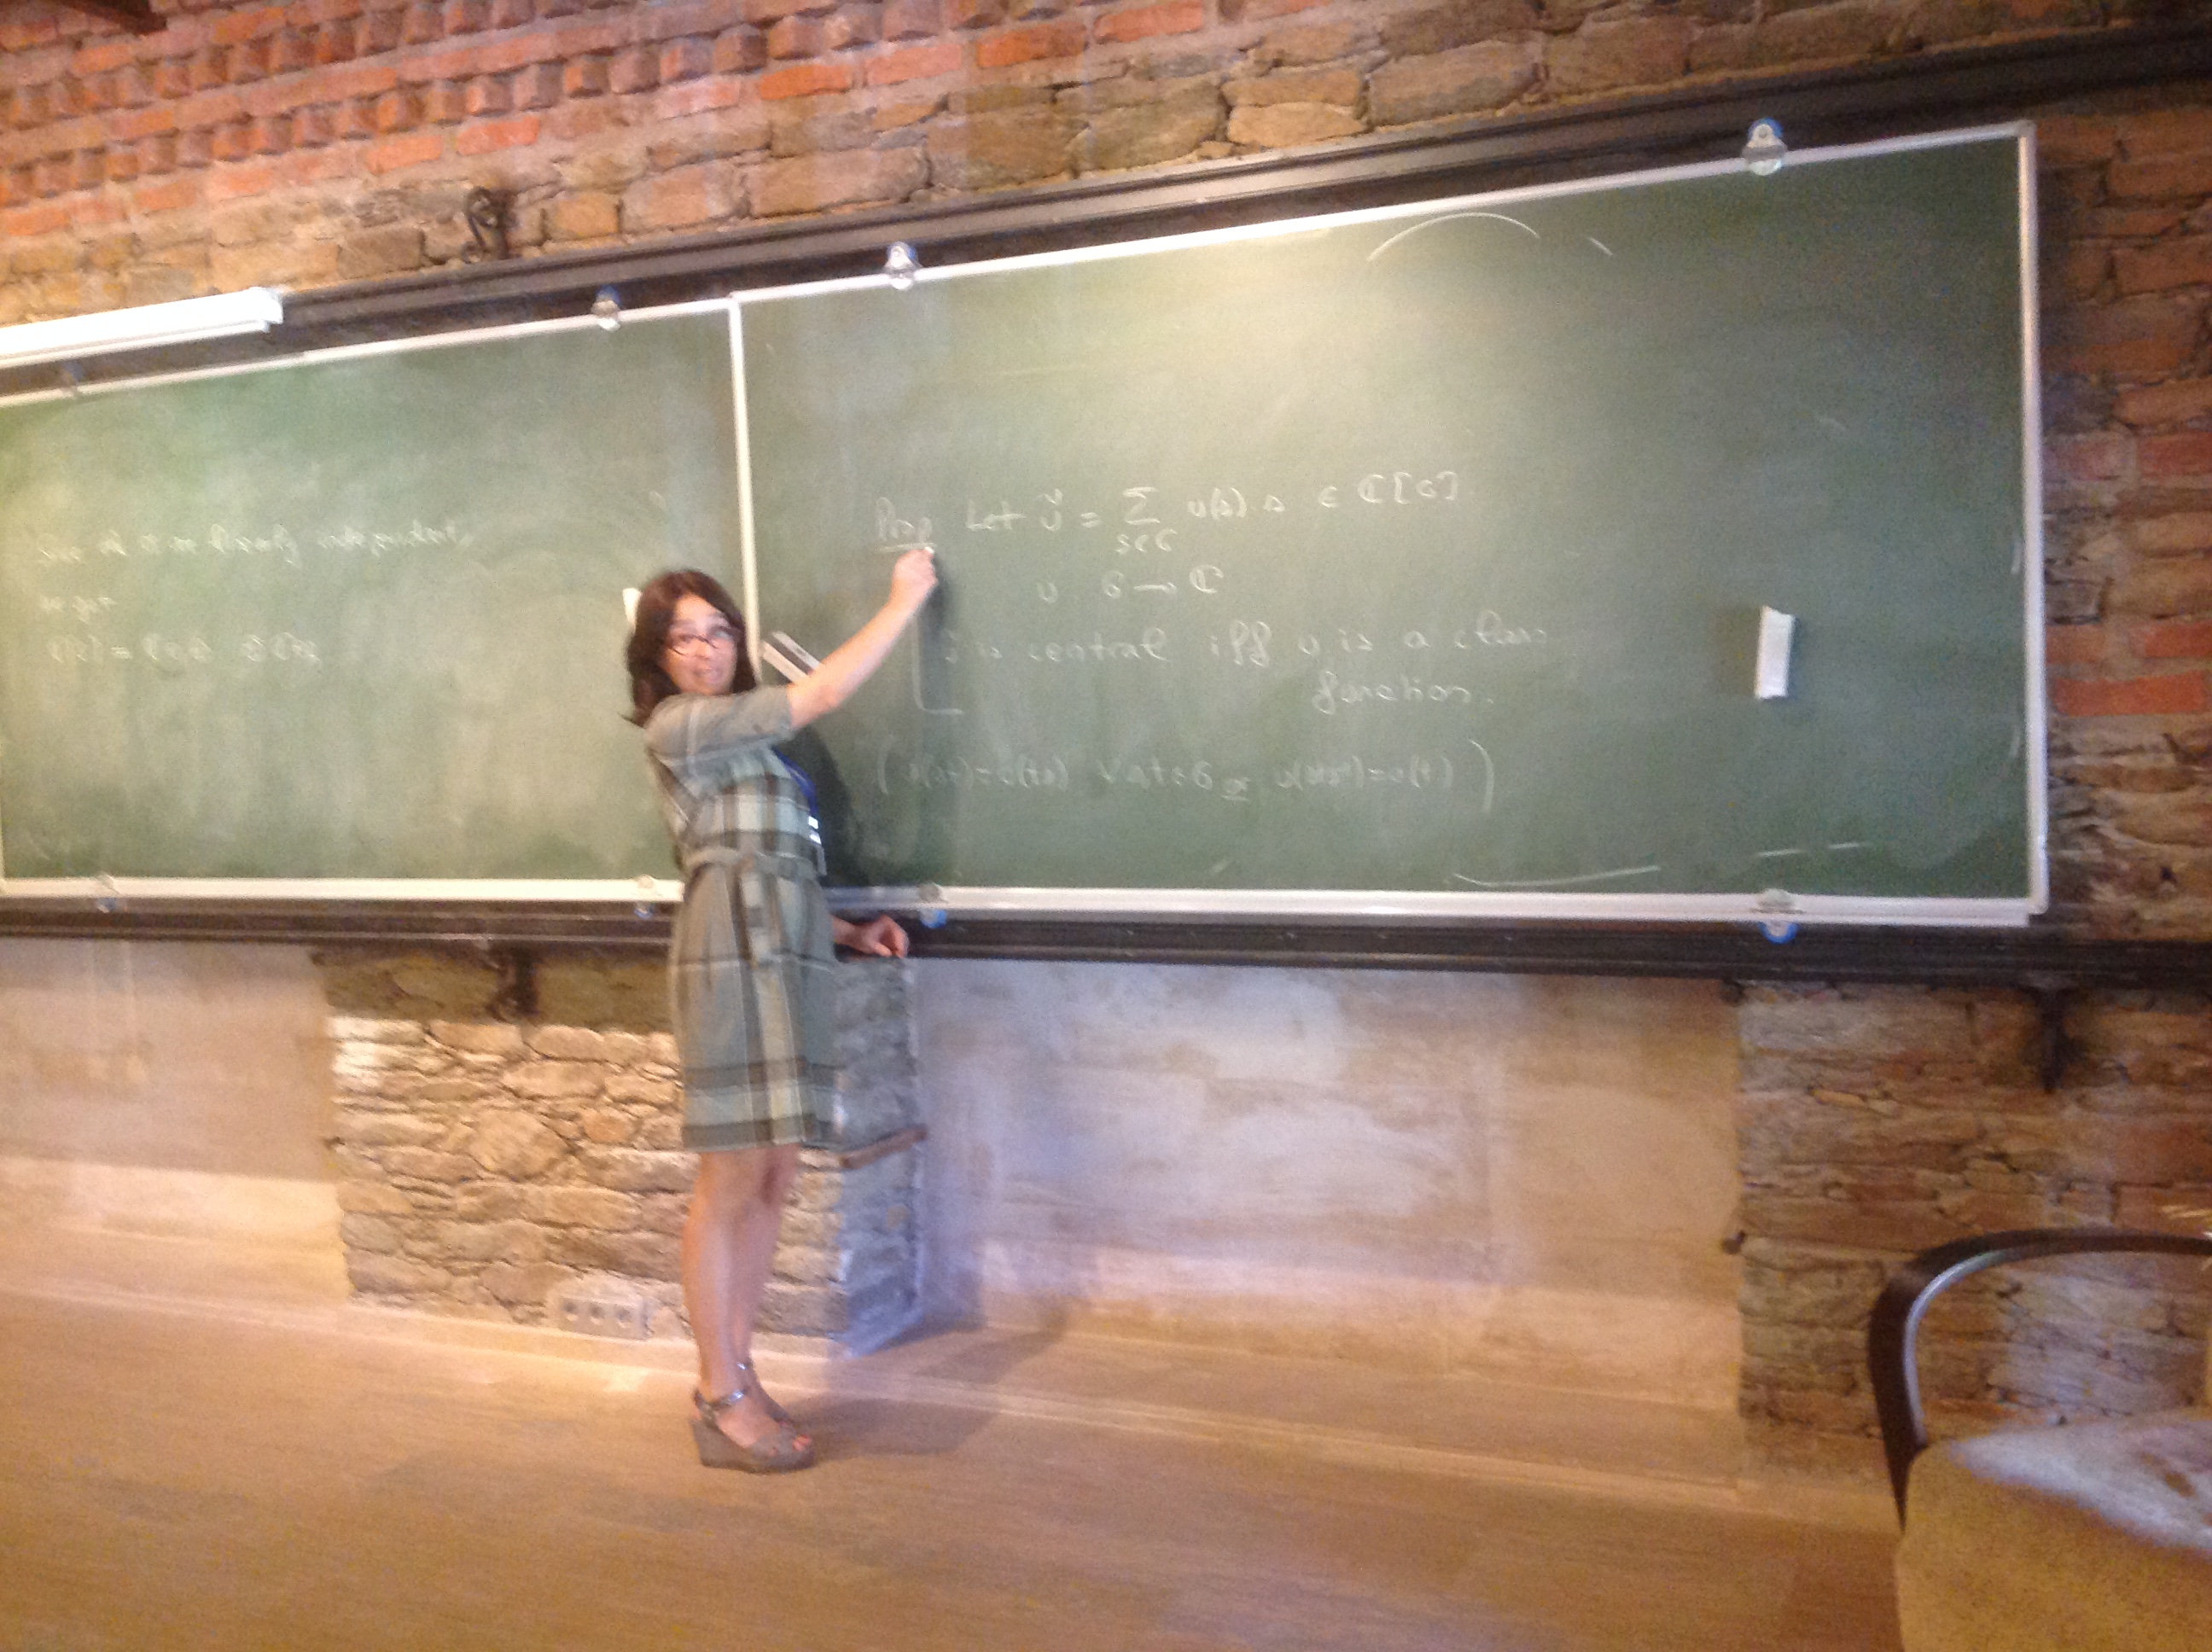 Since the are linearly independent,
we get
Prop Let ũ = Σ u(s) s ∈ ℂ[G]
s∈G
u G → ℂ
ũ is central iff u is a class
function.
( u(st)=u(ts) ∀ s,t∈G or u(sts⁻¹)=u(t) )